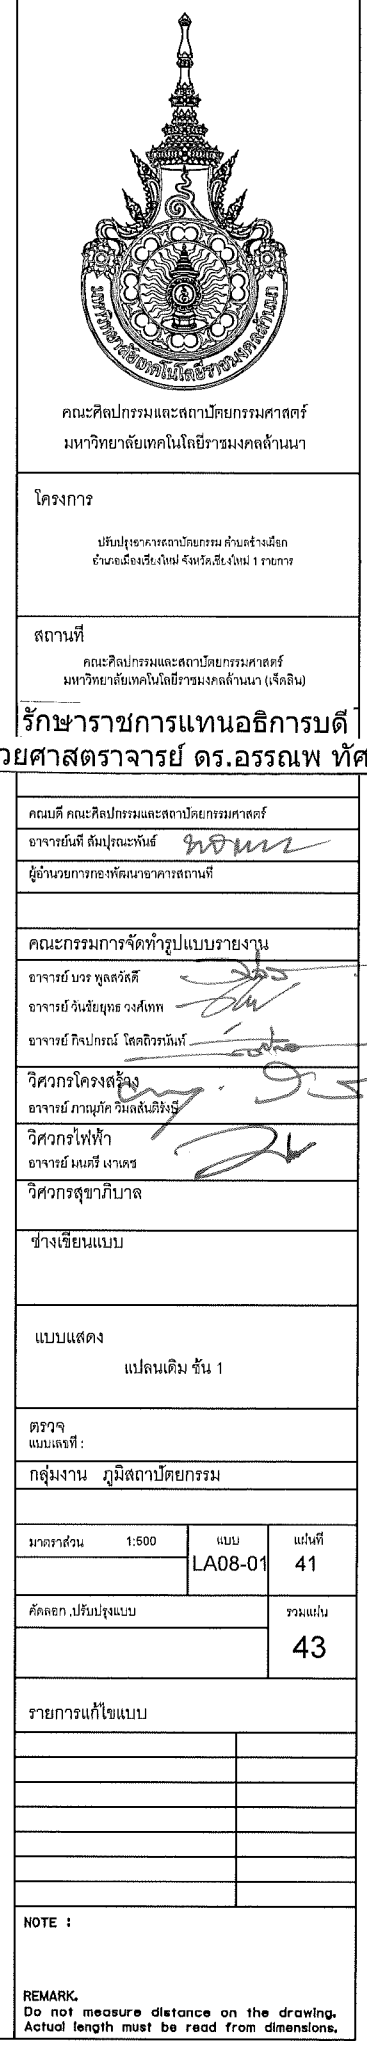 มหาวิทยาลัยเทคโนโลยีราชมงคลล้านนา
คณะศิลปกรรมและสถาปัตยกรรมศาสตร์
มหาวิทยาลัยเทคโนโลยีราชมงคลล้านนา
โครงการ
ปรับปรุงอาคารสถาปัตยกรรม ตำบลช้างเผือก
อำเภอเมืองเชียงใหม่ จังหวัดเชียงใหม่ 1 รายการ
สถานที่
คณะศิลปกรรมและสถาปัตยกรรมศาสตร์
มหาวิทยาลัยเทคโนโลยีราชมงคลล้านนา (เจ็ดลิน)
รักษาราชการแทนอธิการบดี
วยศาสตราจารย์ ดร.อรรณพ ทัศ
คณบดี คณะศิลปกรรมและสถาปัตยกรรมศาสตร์
อาจารย์นที ลัมปุรณะพันธ์
ผู้อำนวยการกองพัฒนาอาคารสถานที่
คณะกรรมการจัดทำรูปแบบรายงาน
อาจารย์ บวร พูลสวัสดิ์
อาจารย์ วันชัยยุทธ วงศ์เทพ
อาจารย์ กิจปกรณ์ โสตถิวรนันท์
วิศวกรโครงสร้าง
อาจารย์ ภาณุภัค วิมลสันติรังษี
วิศวกรไฟฟ้า
อาจารย์ มนตรี เงาเดช
วิศวกรสุขาภิบาล
ช่างเขียนแบบ
แบบแสดง
แปลนเดิม ชั้น 1
ตรวจ
แบบเลขที่ :
กลุ่มงาน ภูมิสถาปัตยกรรม
มาตราส่วน 1:500 แบบ แผ่นที่
LA08-01 41
คัดลอก ,ปรับปรุงแบบ รวมแผ่น
43
รายการแก้ไขแบบ
NOTE :
REMARK.
Do not measure distance on the drawing.
Actual length must be read from dimensions.